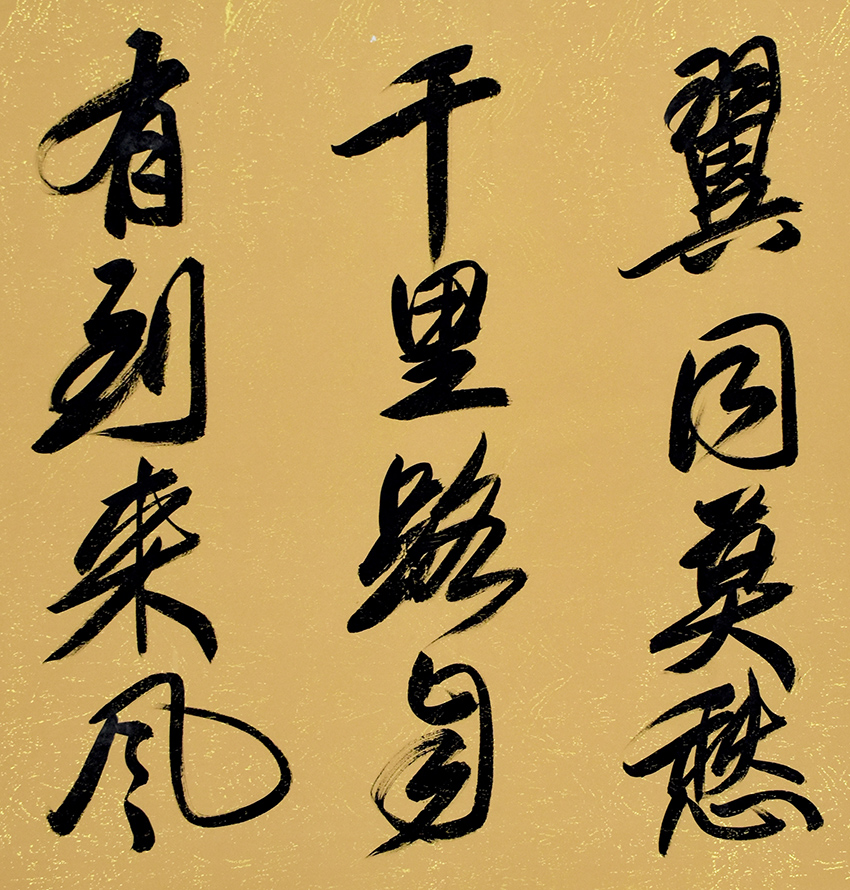 翼同莫愁
千里路自
有到来风